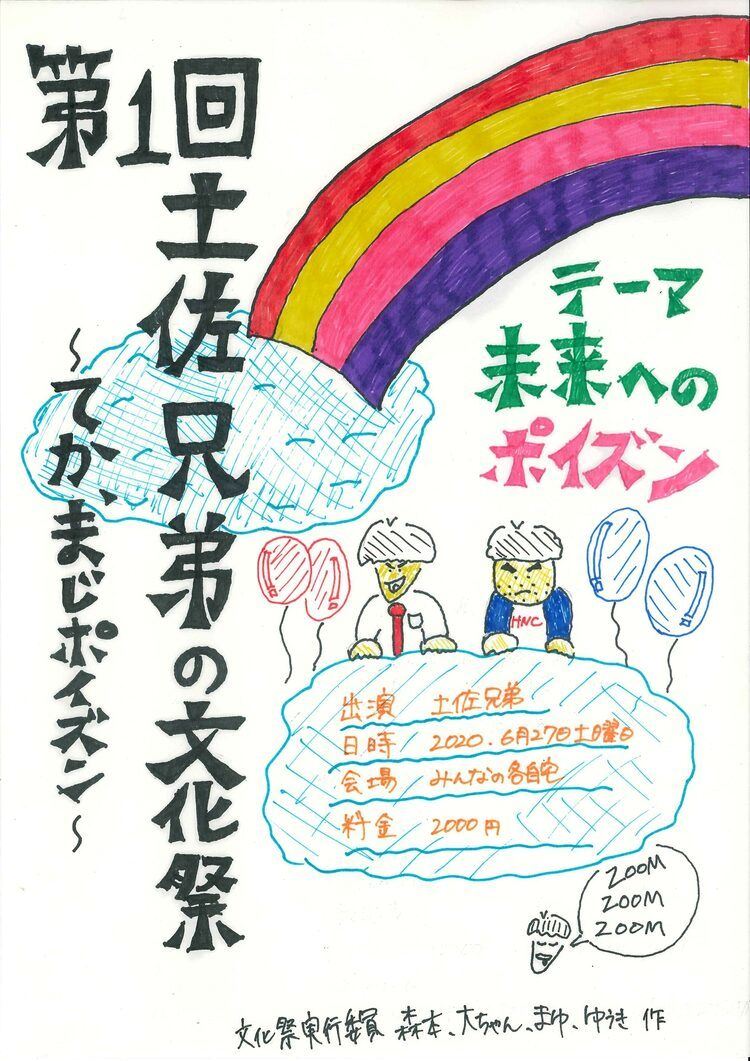 第1回
土佐兄弟の文化祭
～てか、まじポイズン～
テーマ
未来への
ポイズン
HNC
出演 土佐兄弟
日時 2020.6月27日土曜日
会場 みんなの各自宅
料金 2000円
ZOOM
ZOOM
ZOOM
文化祭実行委員 森本、大ちゃん、まゆ、ゆうき 作